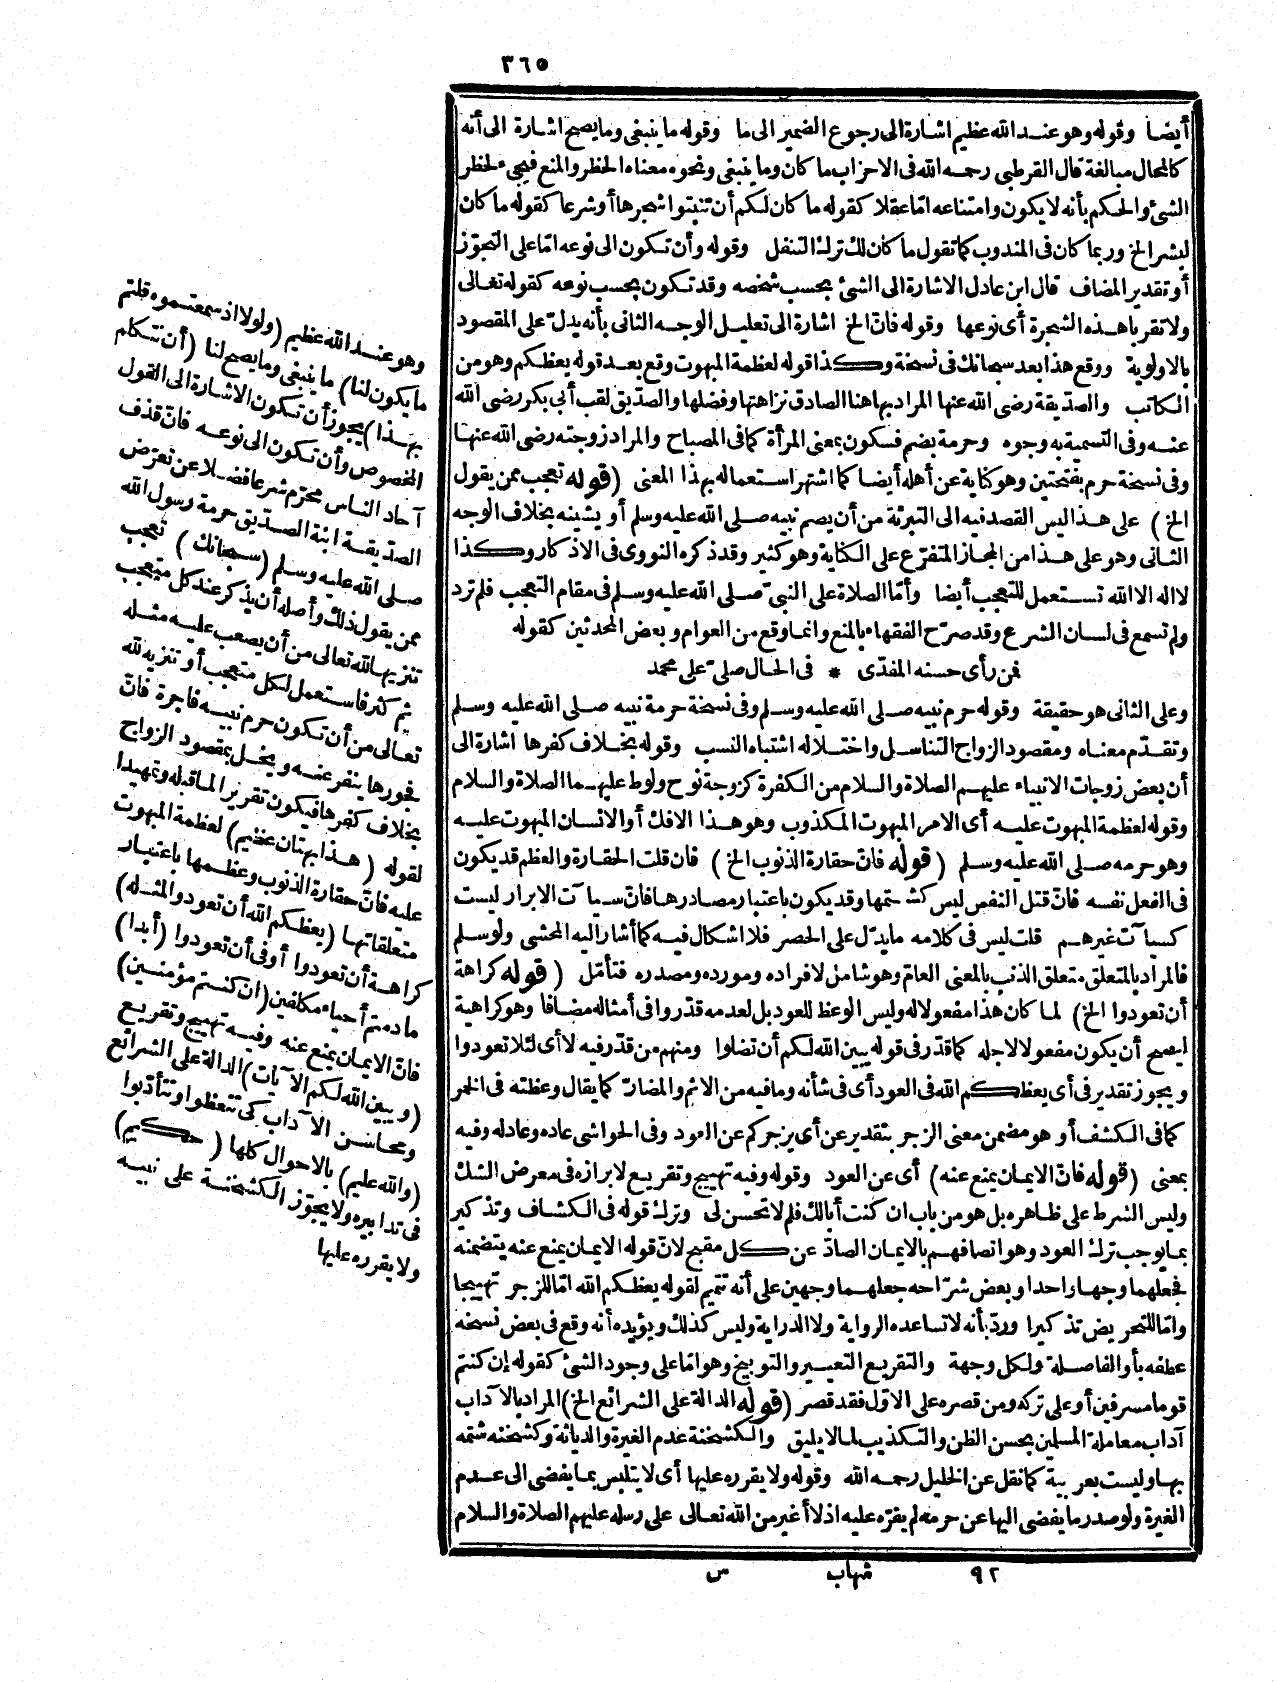 ٣٦٥
أيضا وقوله وهو عند الله عظيم اشارة الى رجوع الضمير الى ما وقوله ما ينبغى وما يصح اشارة الى أنه
كالمحال مبالغة قال القرطبى رحمه الله فى الاحزاب ما كان وما ينبغى ونحوه معناه الحظر والمنع فيجىء لحظر
الشئ والحكم بأنه لا يكون وامتناعه اما عقلا كقوله ما كان لكم أن تنبتوا شجرها أو شرعا كقوله ما كان
لبشر الخ وربما كان فى المندوب كما تقول ما كان لك ترك التنفل وقوله وأن تكون الى نوعه اما على التجوّز
أو تقدير المضاف قال ابن عادل الاشارة الى الشئ بحسب شخصه وقد تكون بحسب نوعه كقوله تعالى
ولا تقربا هذه الشجرة أى نوعها وقوله فانّ الخ اشارة الى تعليل الوجه الثانى بأنه يدل على المقصود
بالاولوية ووقع هذا بعد سبحانك فى نسخة وكذا قوله لعظمة المبهوت وقع بعد قوله يعظكم وهو من
الكاتب والصديقة رضى الله عنها المراد بها هنا الصادق نزاهتها وفضلها والصدّيق لقب أبى بكر رضى الله
عنه وفى التسمية به وجوه وحرمة بضم فسكون بمعنى المرأة كما فى المصباح والمراد زوجته رضى الله عنها
وفى نسخة حرم بفتحتين وهو كناية عن أهله أيضا كما اشتهر استعماله بهذا المعنى (قوله تعجب ممن يقول
الخ) على هذا ليس القصد فيه الى التبرئة من أن يصم نبيه صلى الله عليه وسلم أو يشينه بخلاف الوجه
الثانى وهو على هذا من المجاز المتفرّع على الكناية وهو كثير وقد ذكره النووى فى الاذكار وكذا
لا اله الا الله تستعمل للتعجب أيضا وأمّا الصلاة على النبىّ صلى الله عليه وسلم فى مقام التعجب فلم ترد
ولم تسمع فى لسان الشرع وقد صرّح الفقهاء بالمنع وانما وقع من العوام وبعض المحدثين كقوله
فمن رأى حسنه المفدّى * فى الحال صلى على محمد
وعلى الثانى هو حقيقة وقوله حرم نبيه صلى الله عليه وسلم وفى نسخة حرمة نبيه صلى الله عليه وسلم
وتقدّم معناه ومقصود الزواج التناسل واختلاله اشتباه النسب وقوله بخلاف كفرها اشارة الى
أن بعض زوجات الانبياء عليهم الصلاة والسلام من الكفرة كزوجة نوح ولوط عليهما الصلاة والسلام
وقوله لعظمة المبهوت عليه أى الامر المبهوت المكذوب وهو هذا الافك أو الانسان المبهوت عليه
وهو حرمه صلى الله عليه وسلم (قوله فانّ حقارة الذنوب الخ) فان قلت الحقارة والعظم قد يكون
فى الفعل نفسه فانّ قتل النفس ليس كشتمها وقد يكون باعتبار مصادرها فانّ سيآت الابرار ليست
كسيآت غيرهم قلت ليس فى كلامه ما يدلّ على الحصر فلا اشكال فيه كما أشار اليه المحشى ولو سلم
فالمراد بالمتعلق متعلق الذنب بالمعنى العامّ وهو شامل لافراده ومورده ومصدره فتأمّل (قوله كراهة
أن تعودوا الخ) لما كان هذا مفعولا له وليس الوعظ للعود بل لعدمه قدّروا فى أمثاله مضافا وهو كراهية
ليصح أن يكون مفعولا لاجله كما قدر فى قوله يبين الله لكم أن تضلوا ومنهم من قدّر فيه لا أى لئلا تعودوا
ويجوز تقدير فى أى يعظكم الله فى العود أى فى شأنه وما فيه من الاثم والمضارّ كما يقال وعظته فى الخمر
كما فى الكشف أو هو مضمن معنى الزجر بتقدير عن أى يزجركم عن العود وفى الحواشى عاده وعادله وفيه
بمعنى (قوله فانّ الايمان يمنع عنه) أى عن العود وقوله وفيه تهييج وتقريع لابرازه فى معرض الشك
وليس الشرط على ظاهره بل هو من باب ان كنت أبالك فلم لا تحسن لى وترك قوله فى الكشاف وتذكير
بما يوجب ترك العود وهو اتصافهم بالايمان الصادّ عن كل مقبح لانّ قوله الايمان يمنع عنه يتضمنه
فجعلهما وجها واحدا وبعض شرّاحه جعلهما وجهين على أنه تتميم لقوله يعظكم الله امّا للزجر تهييجا
وامّا للتحريض تذكيرا وردّ بأنه لا تساعده الرواية ولا الدراية وليس كذلك ويؤيده أنه وقع فى بعض نسخه
عطفه بأو الفاصلة ولكل وجهة والتقريع التعيير والتوبيخ وهو امّا على وجود الشئ كقوله إن كنتم
قوما مسرفين أو على تركه ومن قصره على الاوّل فقد قصر (قوله الدالة على الشرائع الخ) المراد بالآداب
آداب معاملة المسلمين بحسن الظن والتكذيب لما لا يليق والكشخنة عدم الغيرة والدياثة وكشخنه شتمه
بها وليست بعربية كما نقل عن الخليل رحمه الله وقوله ولا يقرره عليها أى لا يتلبس بما يفضى الى عدم
الغيرة ولو صدر ما يفضى اليها عن حرمه لم يقرّه عليه اذ لا أغير من الله تعالى على رسله عليهم الصلاة والسلام
وهو عند الله عظيم (ولولا اذ سمعتموه قلتم
ما يكون لنا) ما ينبغى وما يصح لنا (أن نتكلم
بهذا) يجوز أن تكون الاشارة الى القول
المخصوص وأن تكون الى نوعه فانّ قذف
آحاد الناس محرّم شرعا فضلا عن تعرّض
الصدّيقة ابنة الصدّيق حرمة رسول الله
صلى الله عليه وسلم (سبحانك) تعجب
ممن يقول ذلك وأصله أن يذكر عند كل متعجب
تنزيها لله تعالى من أن يصعب عليه مثله
ثم كثر فاستعمل لكل متعجب أو تنزيه لله
تعالى من أن تكون حرم نبيه فاجرة فانّ
فجورها ينفر عنه ويخل بمقصود الزواج
بخلاف كفرها فيكون تقريرا لما قبله وتمهيدا
لقوله (هذا بهتان عظيم) لعظمة المبهوت
عليه فانّ حقارة الذنوب وعظمها باعتبار
متعلقاتها (يعظكم الله أن تعودوا لمثله)
كراهة أن تعودوا أو فى أن تعودوا (أبدا)
ما دمتم أحياء مكلفين (ان كنتم مؤمنين)
فانّ الايمان يمنع عنه وفيه تهييج وتقريع
(ويبين الله لكم الآيات) الدالة على الشرائع
ومحاسن الآداب كى تتعظوا وتتأدّبوا
(والله عليم) بالاحوال كلها (حكيم)
فى تدابيره ولا يجوّز الكشخنة على نبيه
ولا يقرره عليها
٩٢ شهاب س